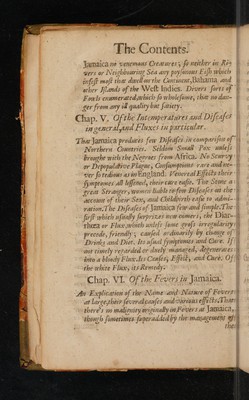 The Contents.
Jamaica no venomous Creatures; so neither in Ri-
vers or Neighbouring Sea any poysonous Fish which
infest most that dwell on the Continent, Bahama, and
other Islands of the West Indies. Divers sorts of
Fowls enumerated, which so wholesome, that no dan-
ger from any ill quality but Satiety.
Chap. V. Of the Intemperatures and Diseases
in general, and Fluxes in particular.
That Jamaica produces few Diseases in comparison of
Northern Countries. Seldom Small Pox unless
brought with the Negroes from Africa. No Scurvy
or Depopulative Plague, Consumptions rare and ne-
ver so tedious as in England. Venereal Effects their
symptomes all lessened, their cure easie. The Stone a
great Stranger, women liable to few Diseases on the
account of their Sex, and Childbirth easie to admi-
ration. The Diseases of Jamaica few and simple. The
first which usually surprizes new comers, the Diar-
rhœa or Flux, which unless some gross irregularity
precede, friendly; caused ordinarily by change of
Drinks and Diet. Its usual symptomes and Cure. If
not timely regarded or duely managed, degenerates
into a bloody Flux. Its Causes, Effects, and Cure. Of
the white Flux, its Remedy.
Chap. VI. Of the Fevers in Jamaica.
An Explication of the Name and Nature of Fevers
at large, their several causes and various effects. That
there's no malignity originally in Fevers at Jamaica,
though sometimes superadded by the management of